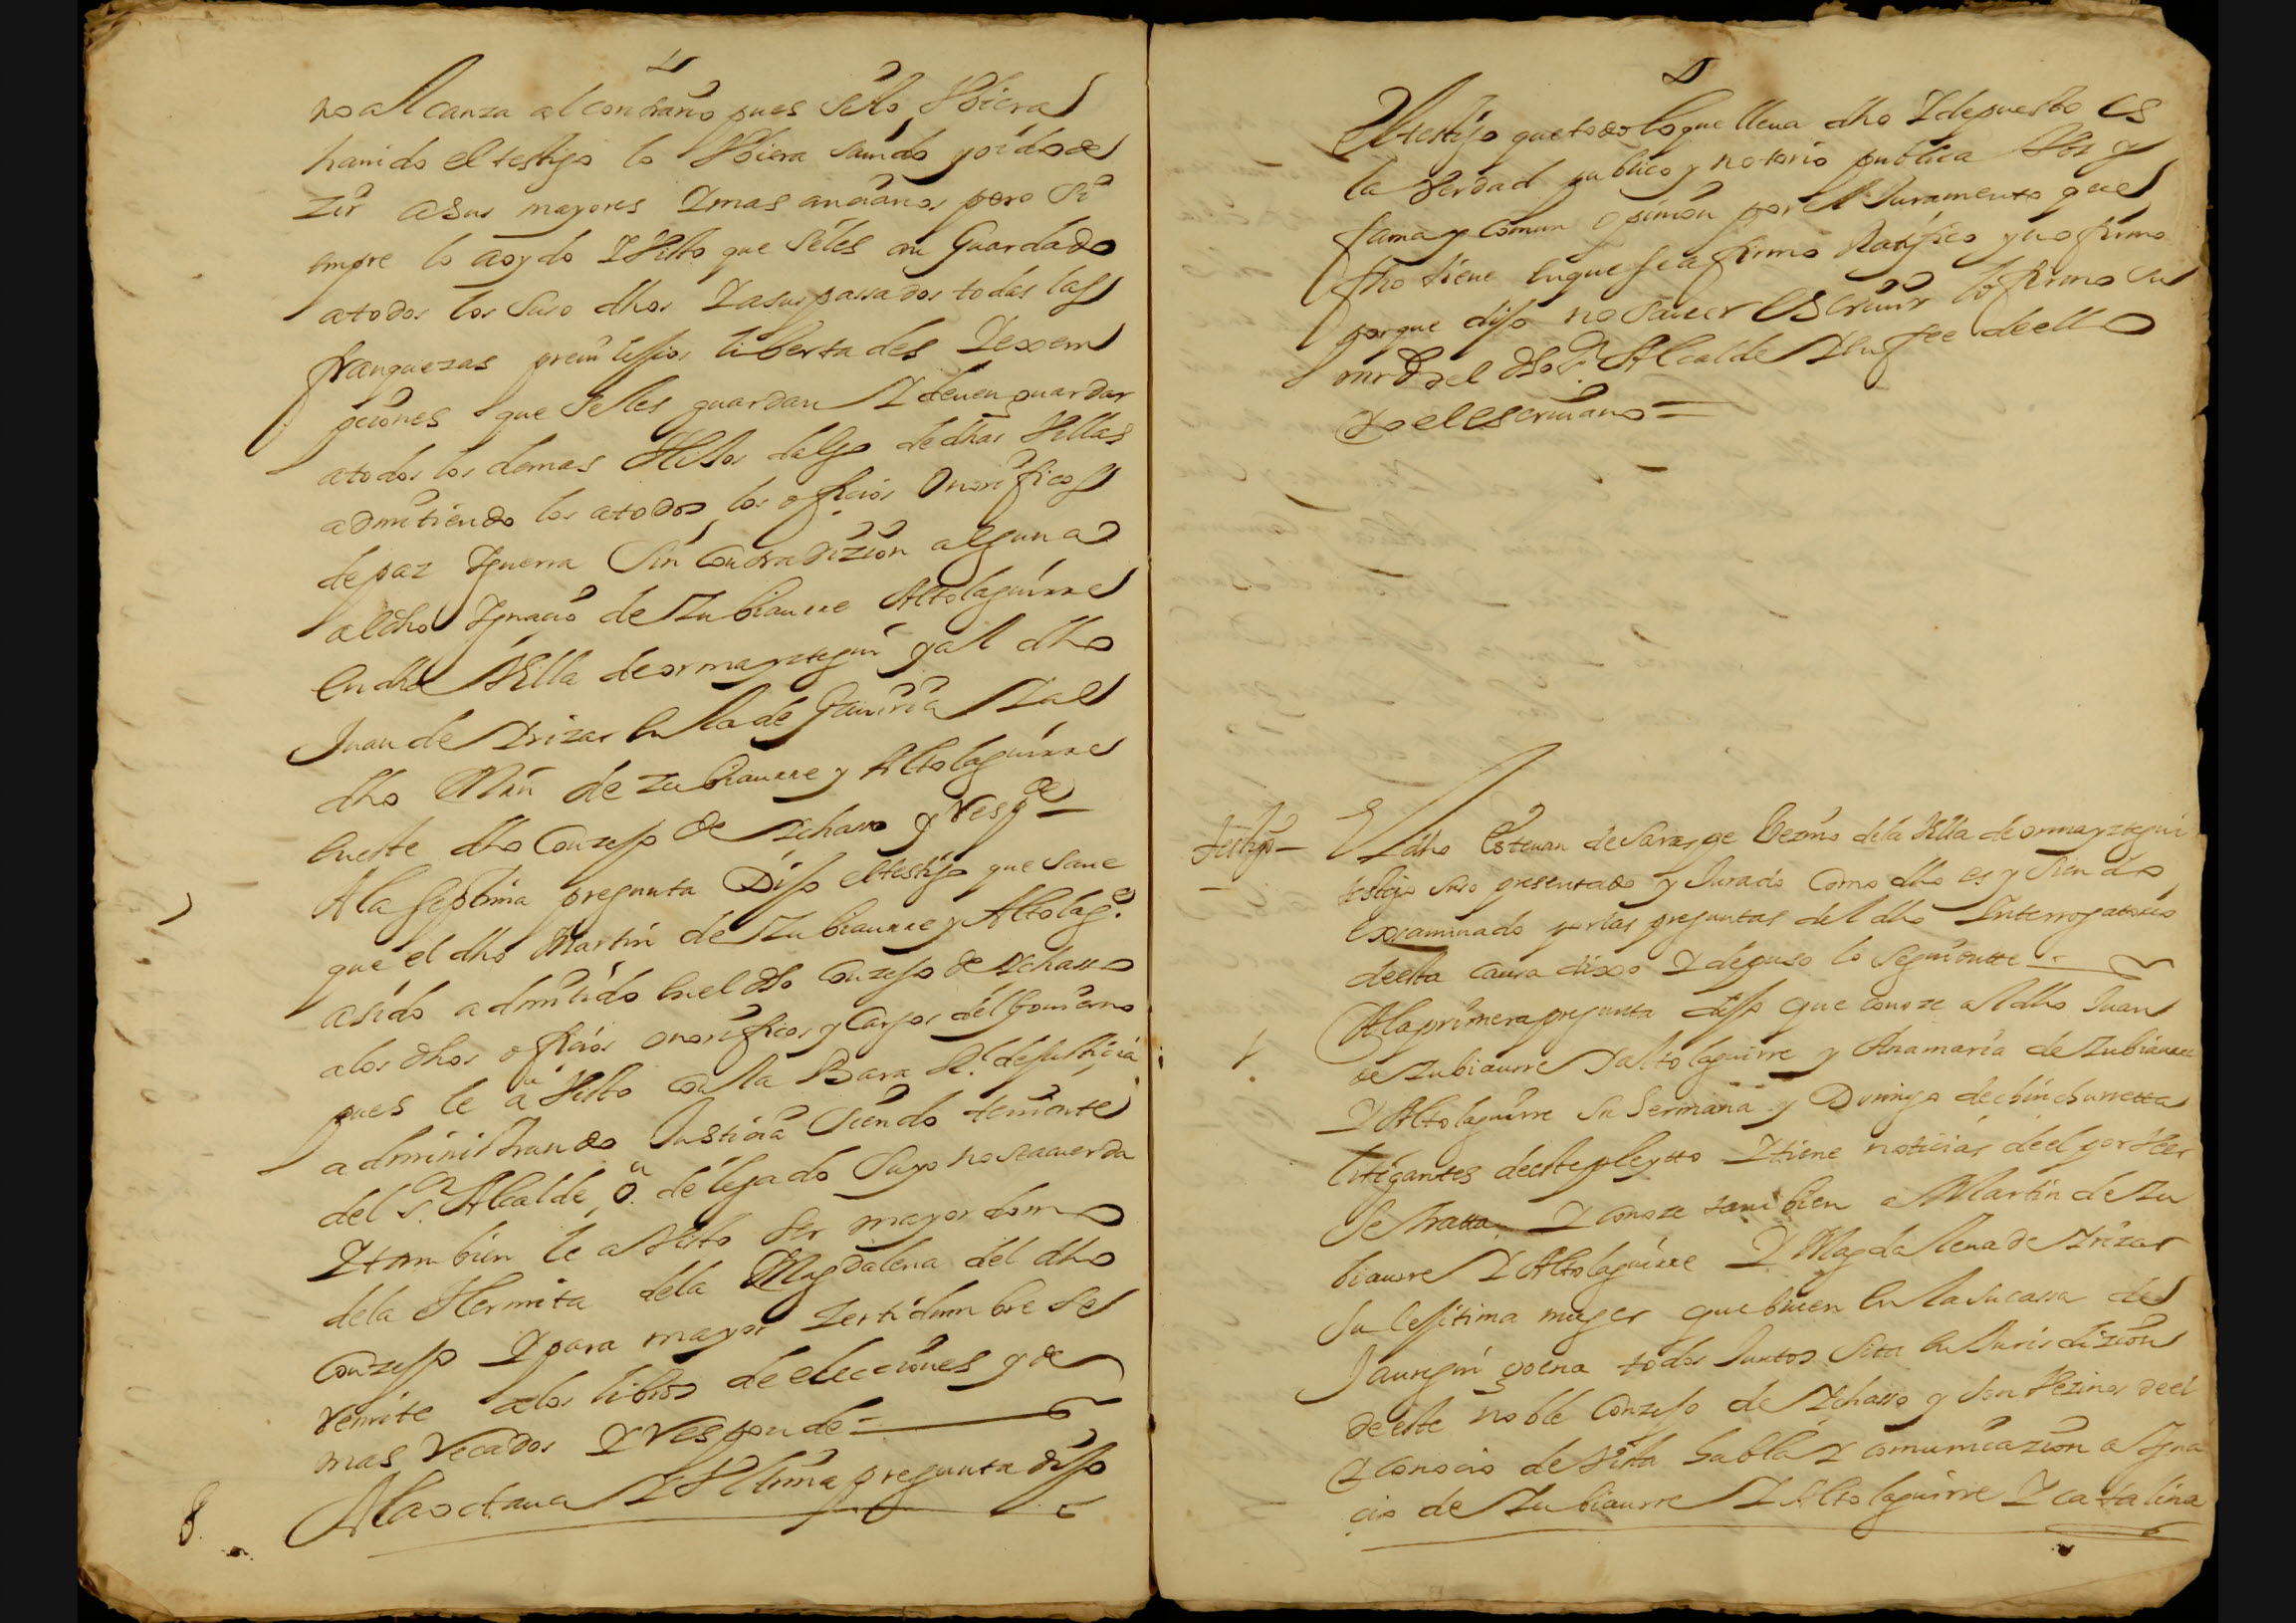 no alcanza al contrario pues si lo Vbiera
hauido el testigo lo Vbiera sauido y oido de
zir a sus mayores Y mas ancianos pero si
empre lo a oydo Y Visto que se les an Guardado
a todos los suso dhos Y a sus passados todas las
franquezas preuilessios libertades Y exem
pciones que se les guardan Y deuen guardar
a todos los demas Hijos dalgo de dhas Villas
admitiendo los a todos los officios Onorificos
de paz Y guerra Sin Contradizion alguna
al dho Ygnacio de Zubiaurre Altolaguirre
en dha Villa de ormayztegui y al dho
Juan de Yrizar en la de Gauiria Y al
dho Min de Zubiaurre y Altolaguirre
en este dho Conzejo de Ychasso y Respde
A la septima pregunta Dijo el testigo que saue
que el dho Martin de Zubiaurre y Altolage
a sido admitido en el dho Conzejo de Ychasso
a los dhos officios onorificos y Cargos del Gouierno
pues le a Visto con la Bara Rl de justicia
administrando Justicia siendo teniente
del Sr Alcalde, o delegado suyo no se acuerda
Y tambien le a Visto ser mayordomo
de la Hermita de la Magdalena del dho
Conzejo Y para mayor zertidumbre se
remite a los libros de elecciones y de
mas recados Y responde =
8. A la octaua Y Vltima pregunta dijo
El testigo que todo lo que lleua dho Y depuesto es
la Verdad publico y notorio publica Voz y
fama y Comun opinion por el Juramento que
fho tiene en que se afirmo Ratifico y no firmo
porque dijo no sauer escriuir lo firmo su
mrd del dho Sr Alcalde Y en fee de ello
Yo el escriuano =
testigo – El dho Esteuan de Sarasqe Vezino de la Villa de ormayztegui
testigo suso presentado y Jurado Como dho es y siendo
exsaminado por las preguntas del dho Interrogatorio
de esta causa dixo Y depuso lo seguiente –
1. A la primera pregunta dijo que conoze al dho Juan
de Zubiaurre Y altolaguirre y Ana maria de Zubiaurre
Y Altolaguirre su Hermana y Domingo de chinchurretta
litigantes de este pleytto Y tiene noticias de el por Ver
se tratta Y conoze tambien a Martin de Zu
biaurre Y Altolaguirre Y Magdalena de Yrizar
su lexitima muger que biuen en la su cassa de
Jauregui goena todos Juntos sita en Jurisdizion
de este noble Conzejo de Ychasso y son Vezinos de el
Y conocio de Vista habla Y comunicazion a Ygna
cio de Zubiaurre Y Altolaguirre Y catalina